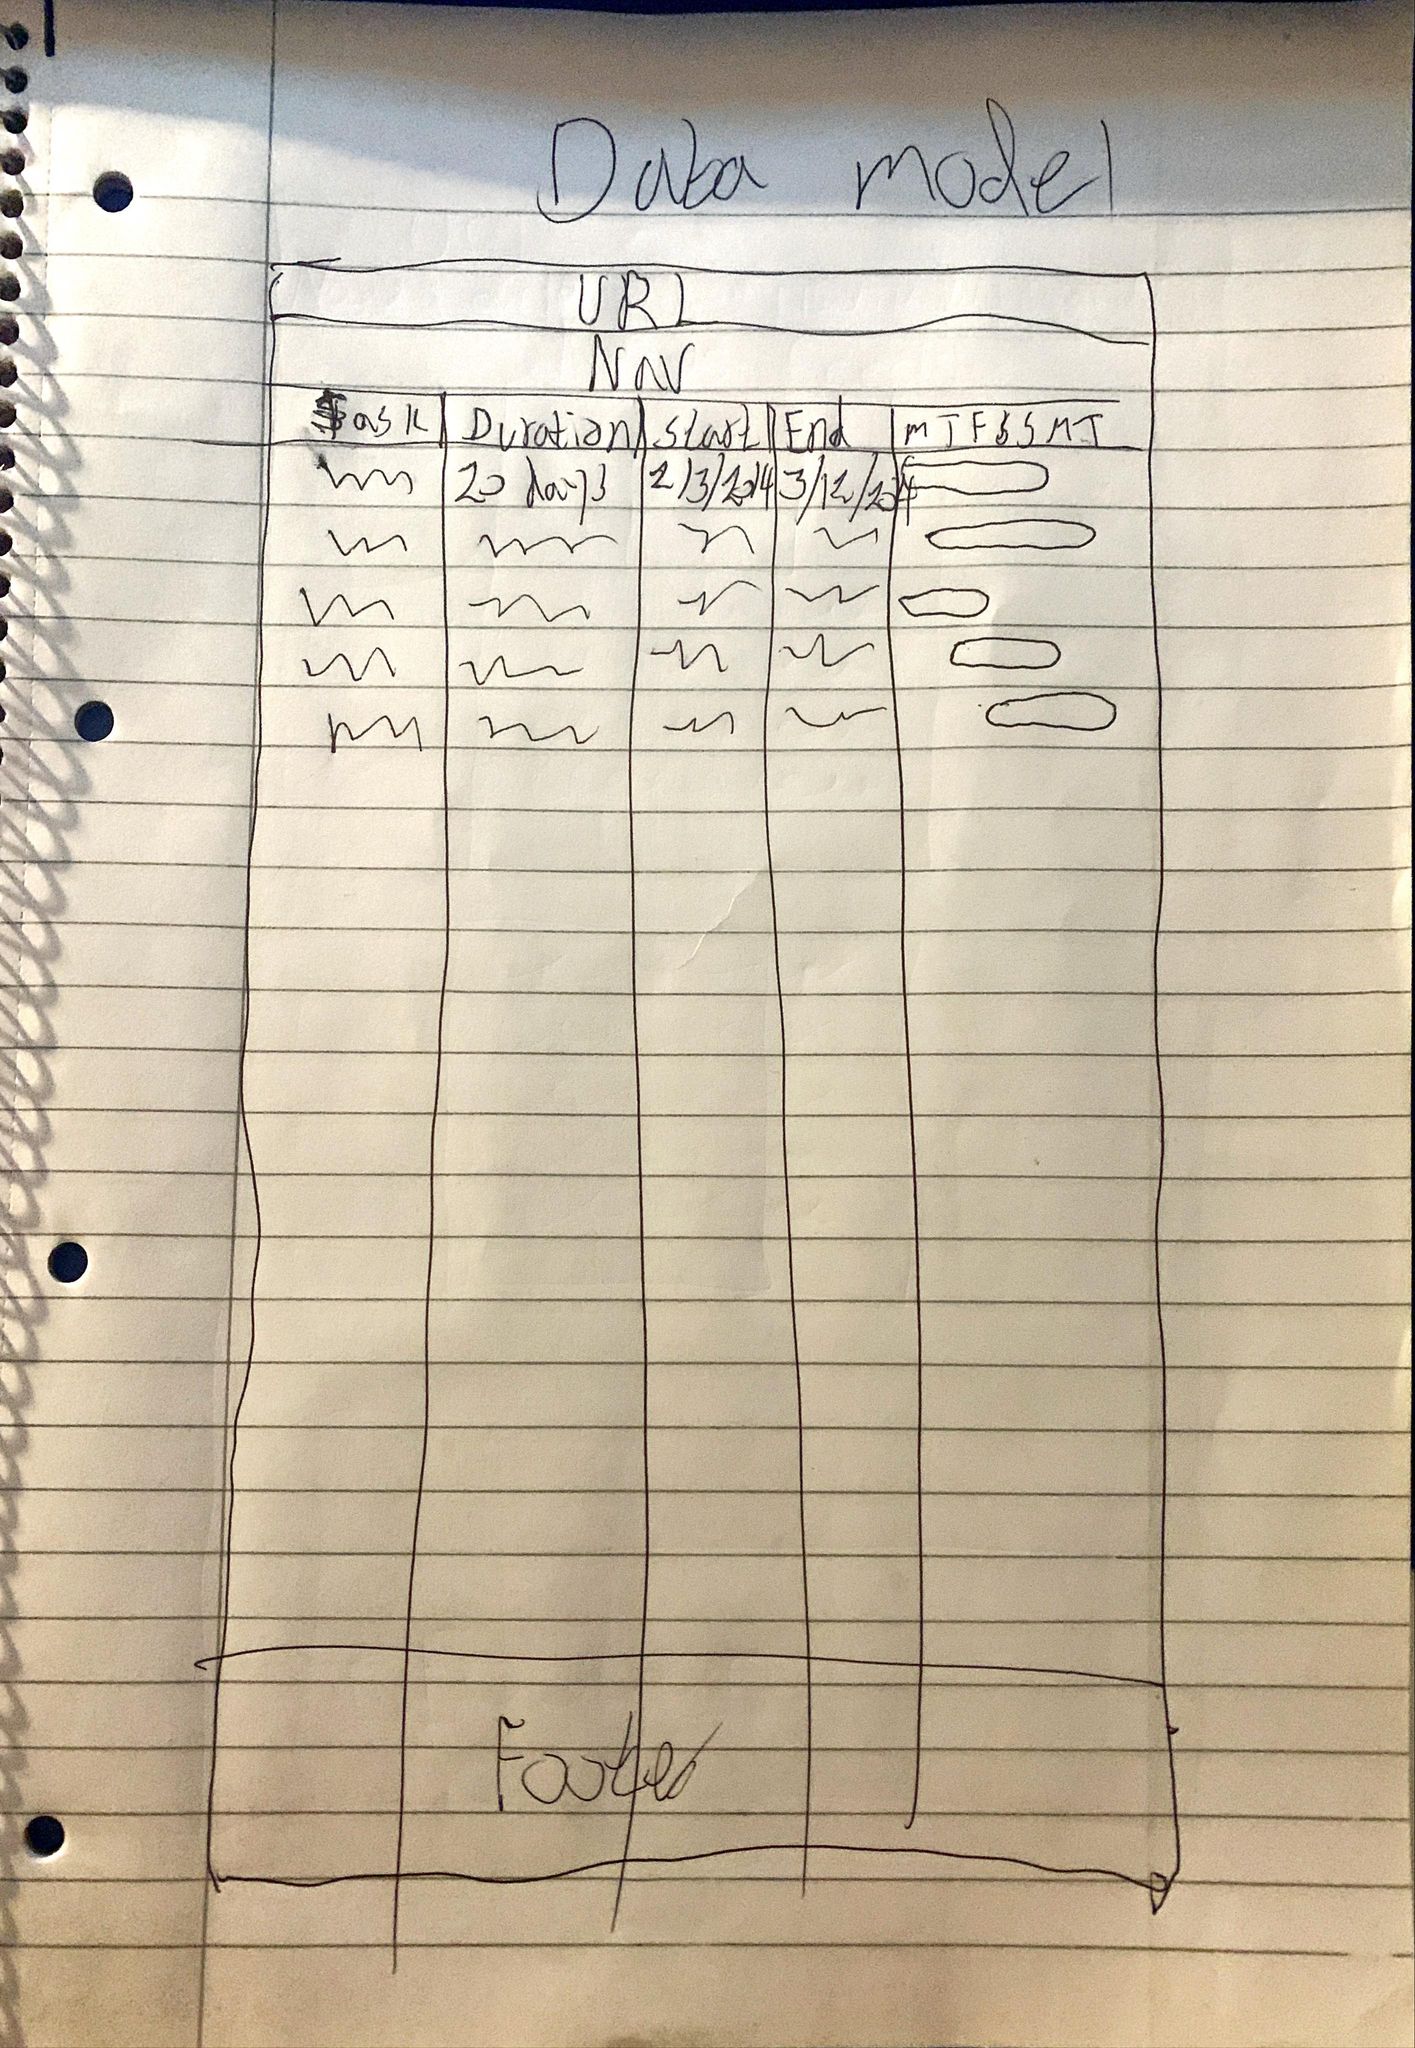 Data model
URL
Nav
Task Duration Start End M T F S S M T
20 days 2/3/2014 3/12/2014
Footer